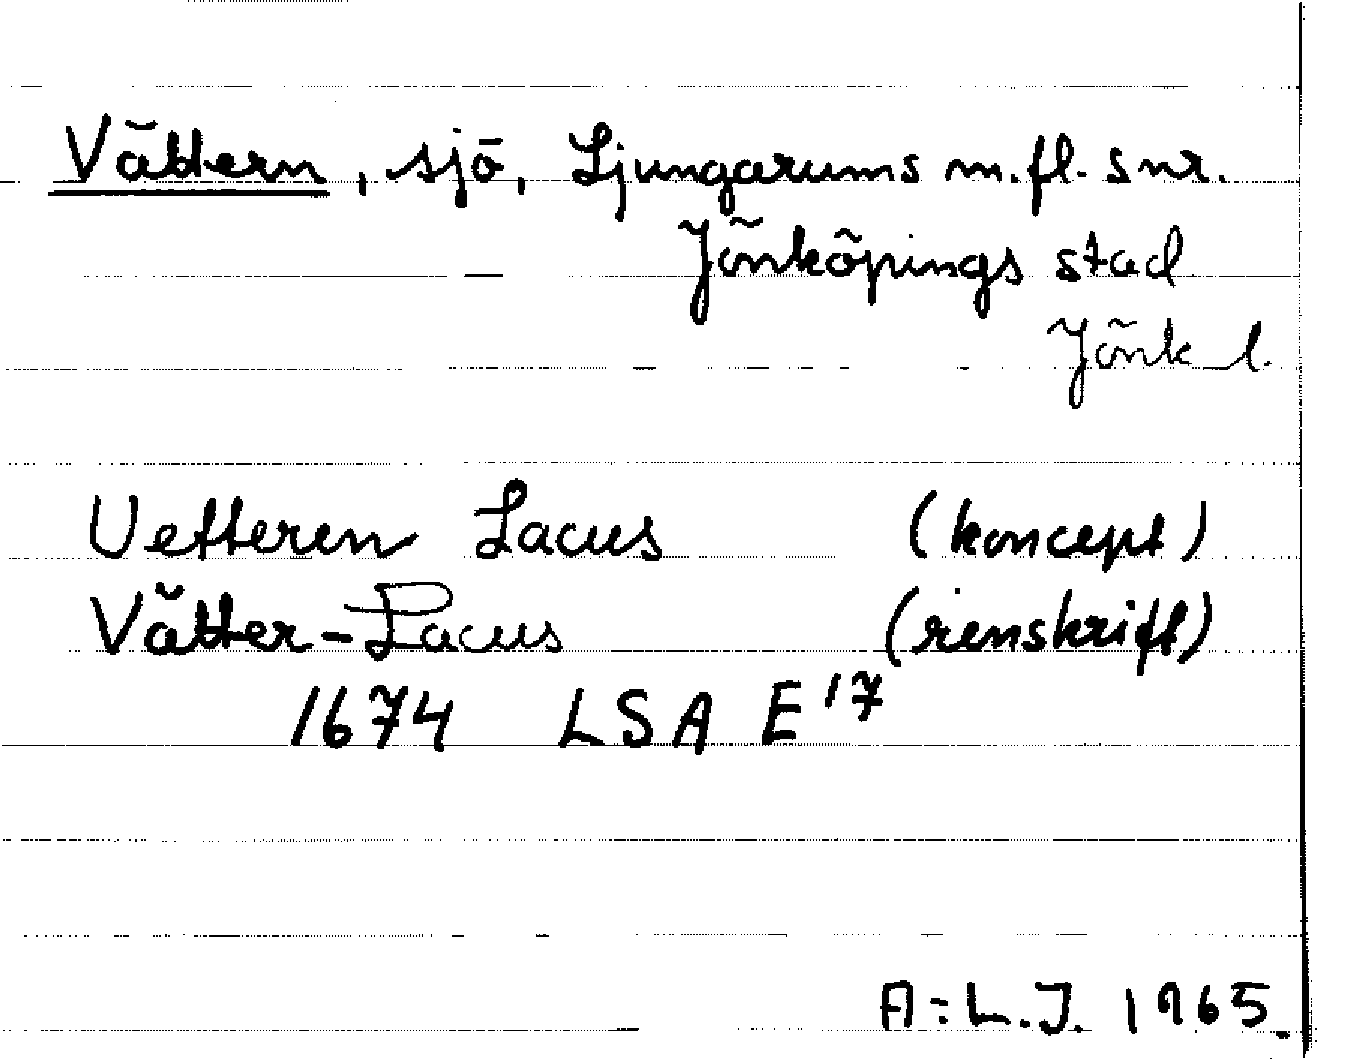 Vättern, sjö, Ljungarums m.fl. snr.
Jönköpings stad
Jönk l.
Uetteren Lacus (koncept)
Vätter-Lacus (renskrift)
1674 LSA E 17
A:L.J. 1965.